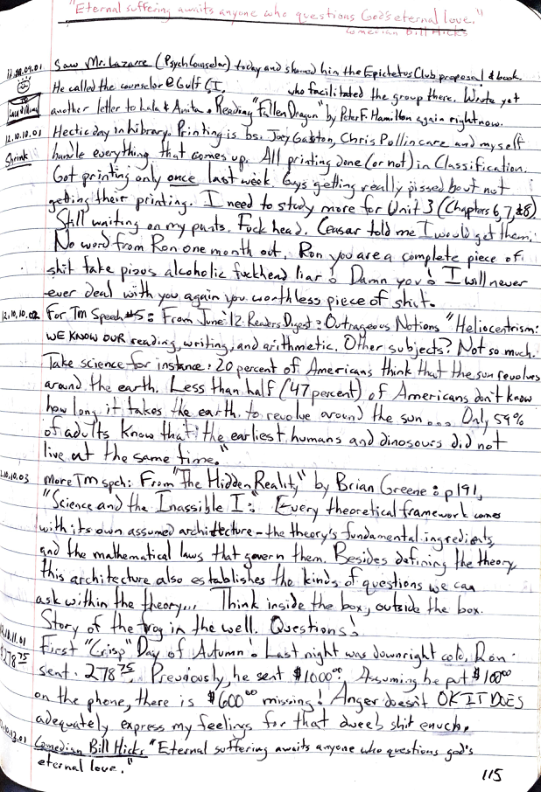 "Eternal suffering awaits anyone who questions God's eternal love."
Comedian Bill Hicks
Saw Mr. Lazarre (Psych Counselor) today and showed him the Epictetus Club proposal & book.
He called the counselor @ Gulf CI, who facilitated the group there. Wrote yet
another letter to Lula & Anita. Reading "Fallen Dragon" by Peter F. Hamilton again right now.
12.10.10.01 Hectic day in library. Printing is bs. Joey Gaston, Chris Pollincare and myself
Shrink handle everything that comes up. All printing done (or not) in Classification.
Got printing only once last week. Guys getting really pissed bout not
getting their printing. I need to study more for Unit 3 (Chapters 6, 7, & 8)
Still waiting on my pants. Fuck head. Ceasar told me I would get them.
No word from Ron one month out. Ron you are a complete piece of
shit fake pious alcoholic fuckhead liar! Damn you! I will never
ever deal with you again you worthless piece of shit.
12.10.10.02 For Tm Speech #5: From June '12 Readers Digest: Outrageous Notions "Heliocentrism:
WE KNOW OUR reading, writing, and arithmetic. Other subjects? Not so much.
Take science for instance: 20 percent of Americans think that the sun revolves
around the earth. Less than half (47 percent) of Americans don't know
how long it takes the earth to revolve around the sun... Only 59%
of adults know that the earliest humans and dinosours did not
live at the same time."
10.03 More Tm spch: From "The Hidden Reality" by Brian Greene: p191,
"Science and the Inassible I:" Every theoretical framework comes
with its own assumed architecture - the theory's fundamental ingredients,
and the mathematical laws that govern them. Besides defining the theory,
this architecture also establishes the kinds of questions we can
ask within the theory... Think inside the box, outside the box.
Story of the frog in the well. Questions!
10.11.01 First "Crisp" Day of Autumn! Last night was downright cold, Ron
$278 75 sent. 278 75. Previously, he sent $1000 00. Assuming he put $100 00
on the phone, there is $600 00 missing! Anger doesn't OK IT DOES
adequately express my feelings for that dweeb shit enuch.
Comedian Bill Hicks "Eternal suffering awaits anyone who questions god's
eternal love."
115